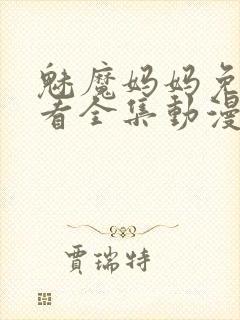 魅魔妈妈免
看全集動漫
贾瑞特